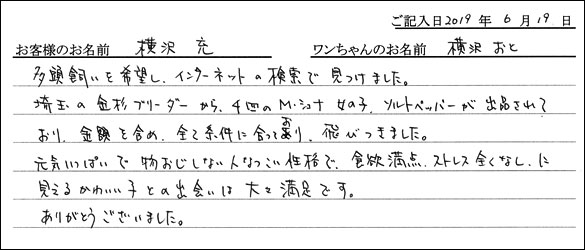 ご記入日2019年 6月 19日
お客様のお名前 横沢 充 ワンちゃんのお名前 横沢 おと
多頭飼いを希望し、インターネットの検索で見つけました。
埼玉の金杉ブリーダーから、4回のM・シュナ 女の子、ソルトペッパーが出品されて
おり、金額を含め、全て条件に合っており、飛びつきました。
元気いっぱいで物おじしない人なつこい性格で、食欲満点、ストレス全くなし、に
見えるかわいい子との出会いは大々満足です。
ありがとうございました。